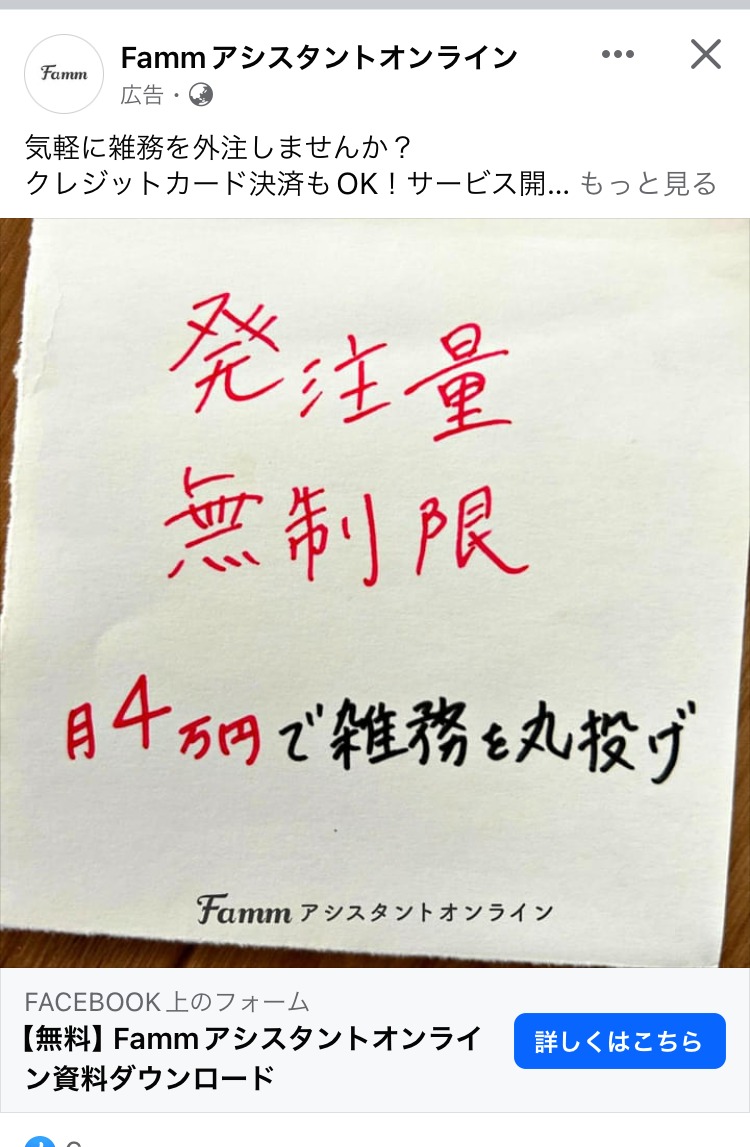 Famm
Fammアシスタントオンライン
広告・
気軽に雑務を外注しませんか？
クレジットカード決済もOK！サービス開... もっと見る
発注量
無制限
月4万円で雑務を丸投げ
Famm アシスタントオンライン
FACEBOOK上のフォーム
【無料】Fammアシスタントオンライ
ン資料ダウンロード
詳しくはこちら